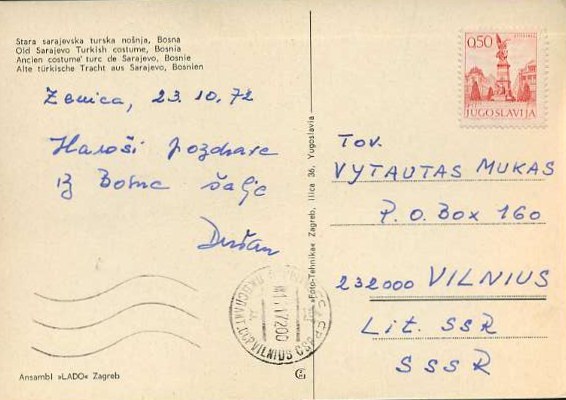 Stara sarajevska turska nošnja, Bosna
Old Sarajevo Turkish costume, Bosnia
Ancien costume turc de Sarajevo, Bosnie
Alte türkische Tracht aus Sarajevo, Bosnien
Zenica, 23.10.72
Haroši pozdrave
iz Bosne šalje
Dušan
Ansambl »LADO« Zagreb
»Foto-Tehnika« Zagreb, Ilica 36, Yugoslavia
0,50
JUGOSLAVIJA
Tov.
VYTAUTAS MUKAS
P.O. Box 160
232000 VILNIUS
Lit. SSR
SSSR
VILNIUS